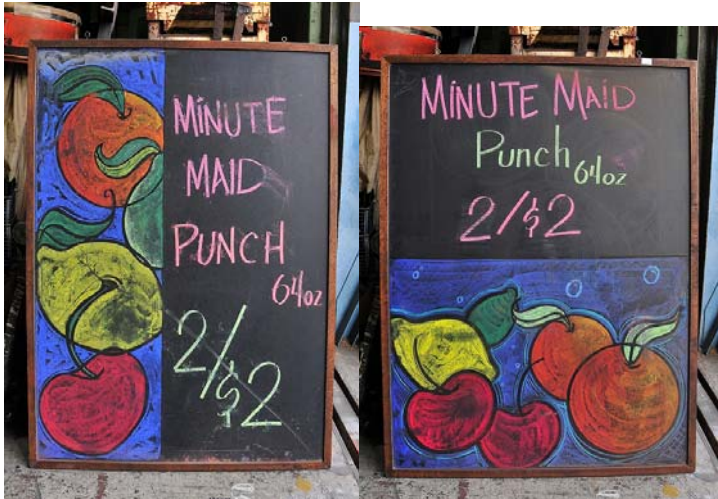 MINUTE
MAID
PUNCH
64oz
2/$2
MINUTE MAID
Punch 64oz
2/$2